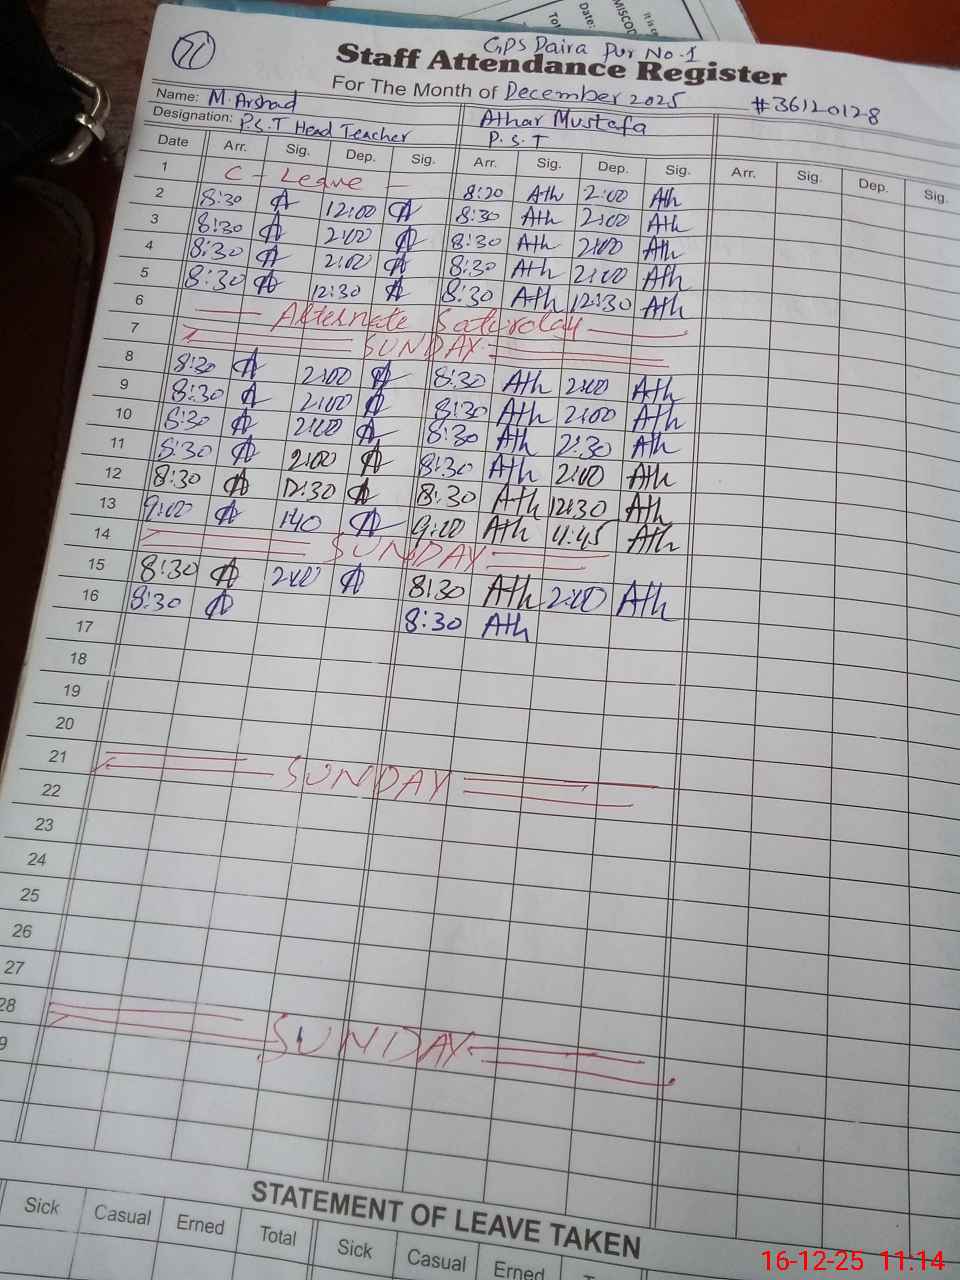 Date:
MISCOD
It is ce
Tot
71
GPS Daira Pur No.1
Staff Attendance Register
For The Month of December 2025 #36120128
Name: M. Arshad Athar Mustafa
Designation: P.S.T Head Teacher P.S.T
Date Arr. Sig. Dep. Sig. Arr. Sig. Dep. Sig. Arr. Sig. Dep. Sig.
1 C - Leave - 8:30 Ath 2:00 Ath
2 8:30 A 12:00 A 8:30 Ath 2:00 Ath
3 8:30 A 2:00 A 8:30 Ath 2:00 Ath
4 8:30 A 2:00 A 8:30 Ath 2:00 Ath
5 8:30 A 12:30 A 8:30 Ath 12:30 Ath
6 Alternate Saturday
7 SUNDAY
8 8:30 A 2:00 A 8:30 Ath 2:00 Ath
9 8:30 A 2:00 A 8:30 Ath 2:00 Ath
10 8:30 A 2:00 A 8:30 Ath 2:30 Ath
11 8:30 A 2:00 A 8:30 Ath 2:00 Ath
12 8:30 A 12:30 A 8:30 Ath 12:30 Ath
13 9:00 A 1:40 A 9:00 Ath 4:45 Ath
14 SUNDAY
15 8:30 A 2:00 A 8:30 Ath 2:00 Ath
16 8:30 A 8:30 Ath
17
18
19
20
21 SUNDAY
22
23
24
25
26
27
28 SUNDAY
9
STATEMENT OF LEAVE TAKEN
Sick Casual Erned Total Sick Casual Erned
16-12-25 11:14